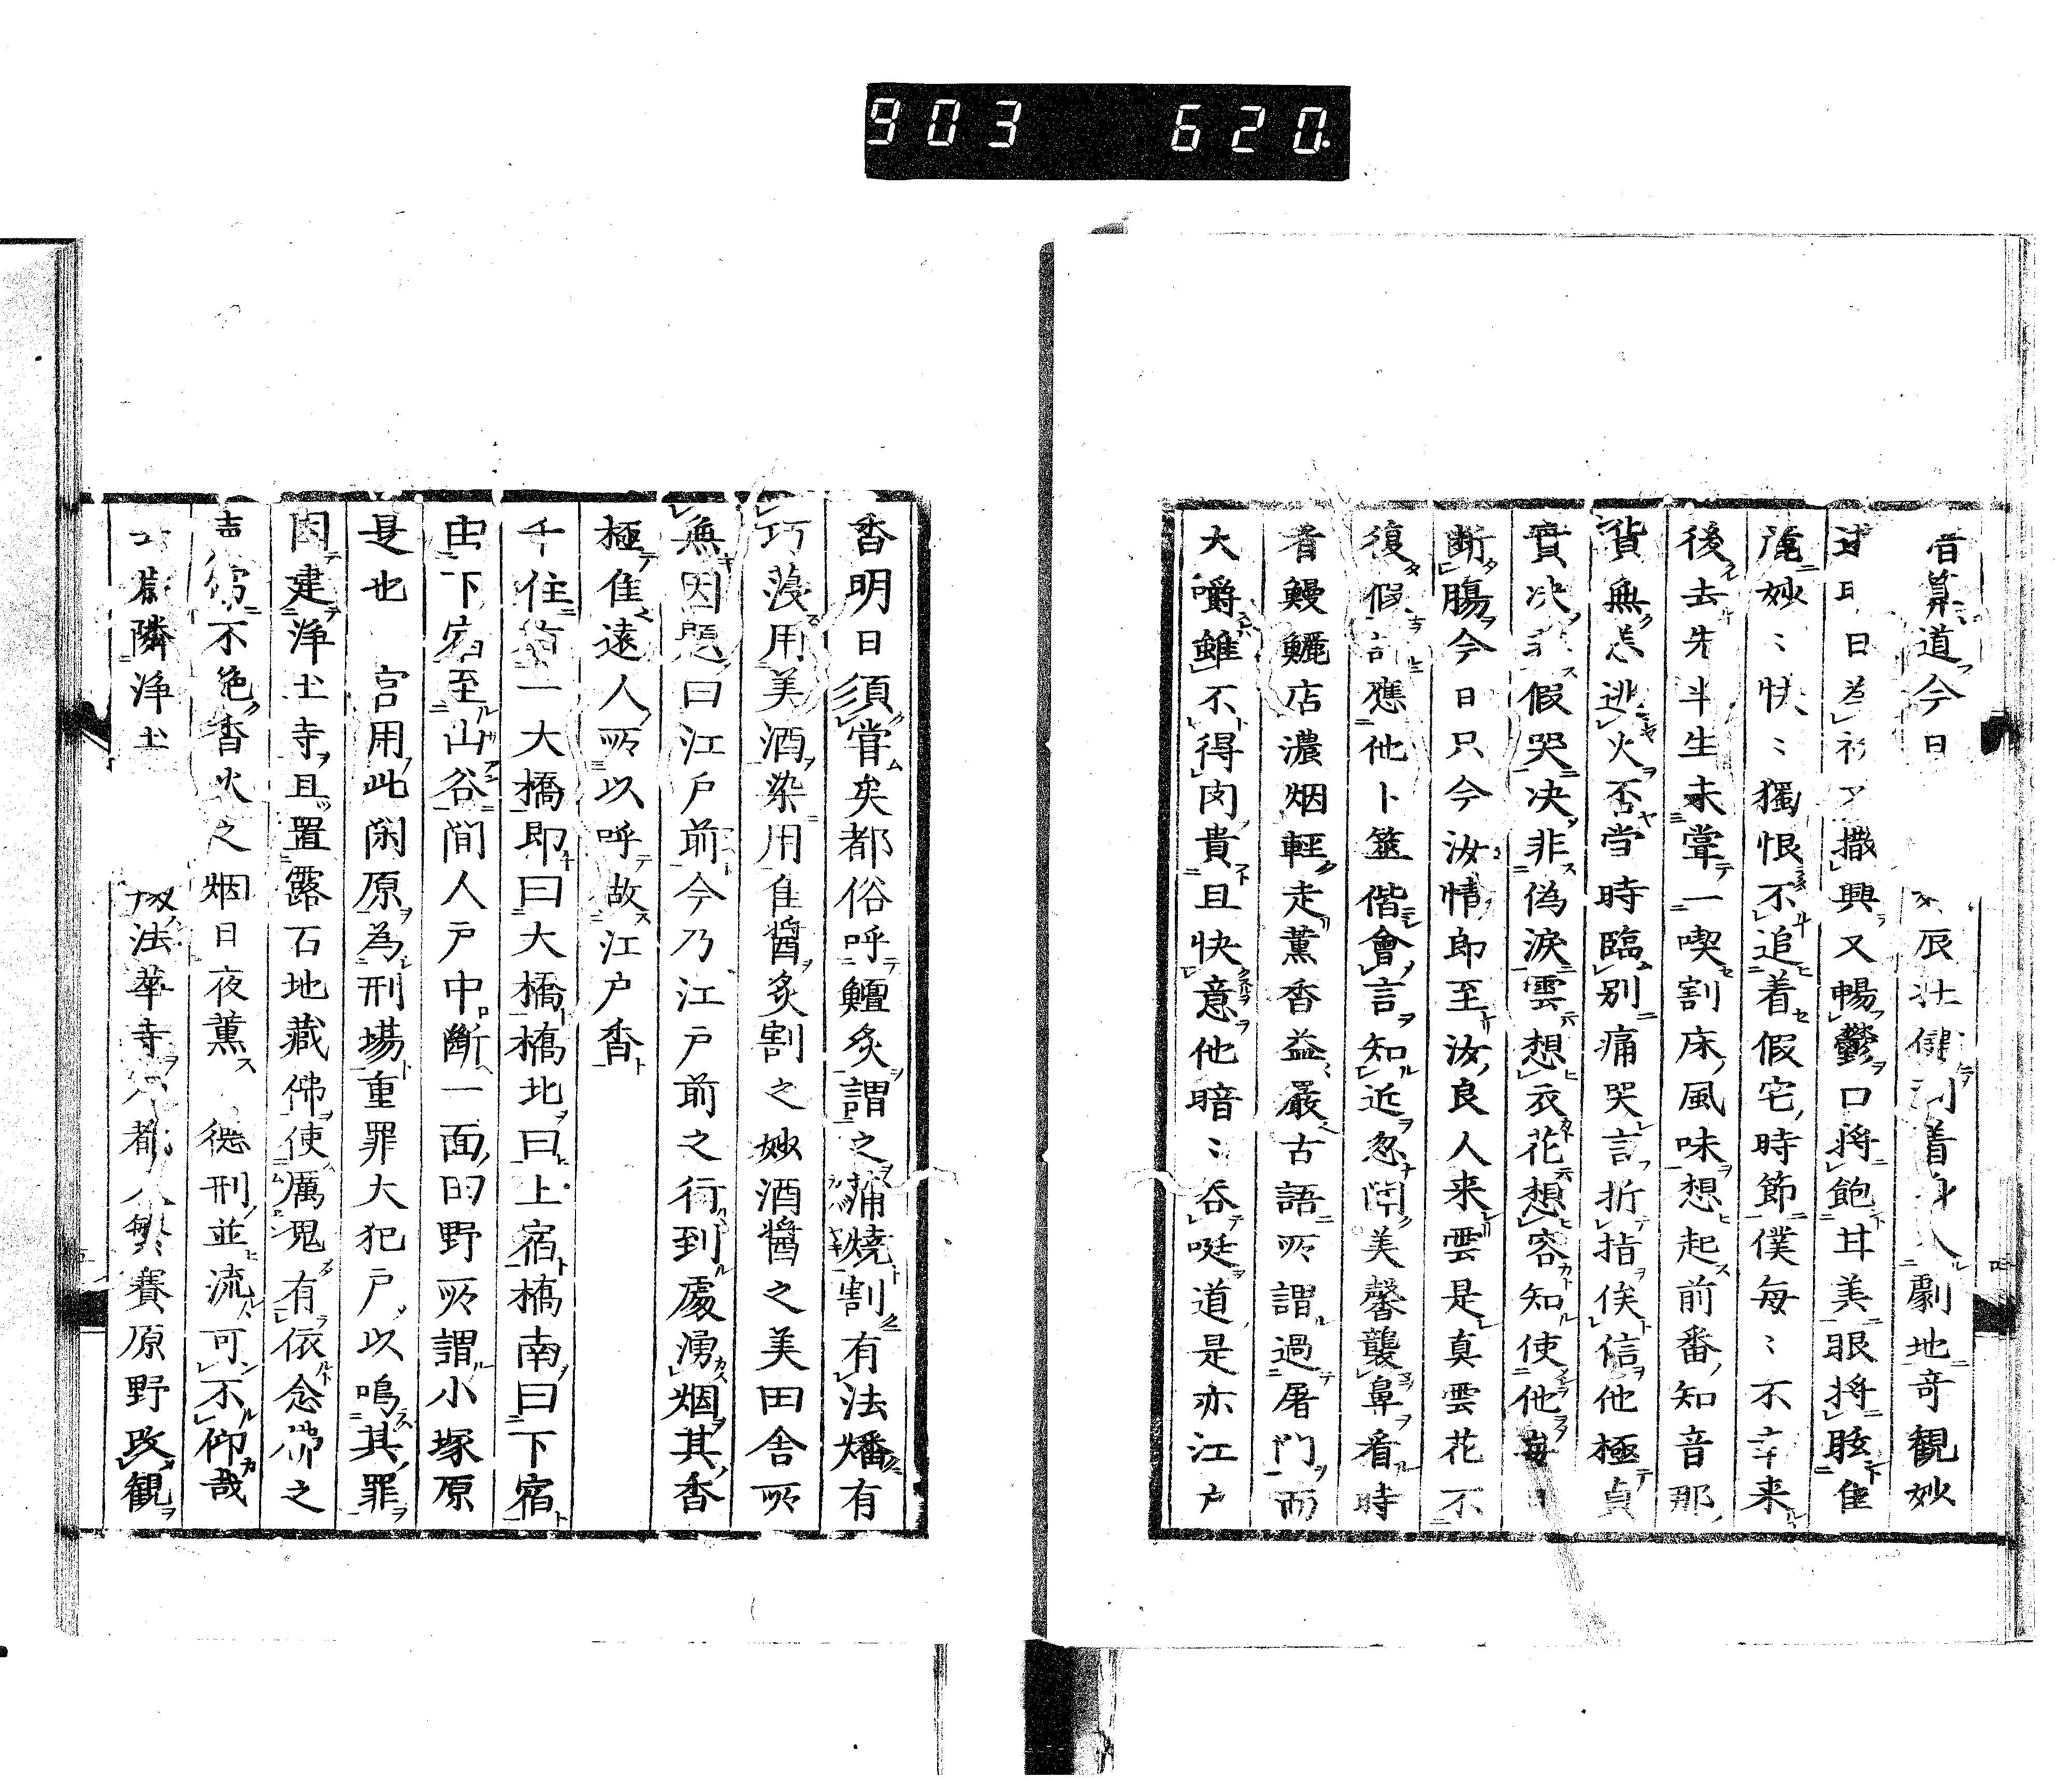 903 620.
道今日 辰 着 人劇地奇観妙
日為 撒興又暢鬱口将飽甘美眼将眩隹
滝妙〻快〻獨恨不追着假宅時節僕毎〻不幸来
後去先斗生未甞一喫割床風味想起前番知音那
貨無 逃火否当時臨別痛哭言折指俟信他極貞
實决 假哭决非偽涙雲想衣花想容知使他毎
断膓今日只今汝情郎至汝良人来雲是真雲花不
復假 應他卜筮偕會言知近忽聞美馨襲鼻看時
香鰻鱺店濃烟輕走薫香益嚴古語所謂過屠門而
大嚼雖不得肉貴且快意他暗〻呑唌道是亦江戸
香明日須甞矣都俗呼鱣炙謂之蒲焼割有法燔有
巧 用美酒染用隹醤炙割之妙酒醤之美田舎所
無因題曰江戸前今乃江戸前之行到處湧烟其香
極隹遠人所以呼故江戸香
千住 一大橋即曰大橋橋北曰上宿橋南曰下宿
由下宿至山谷間人戸中断一面的野所謂小塚原
是也 官用此閑原為刑場重罪大犯戸以鳴其罪
因建浄土寺且置露石地蔵佛使厲鬼有依念佛之
声 不絶香火之烟日夜薫 徳刑並流可不仰哉
隣浄土 法華寺 都人 賽原野改観